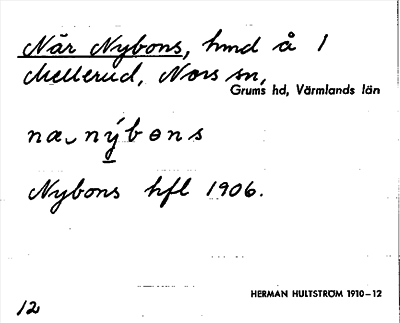 När Nybons, hmd å 1
Mellerud, Nors sn,
Grums hd, Värmlands län
næ‿nýbɵns
Nybons hfl 1906.
HERMAN HULTSTRÖM 1910–12
12